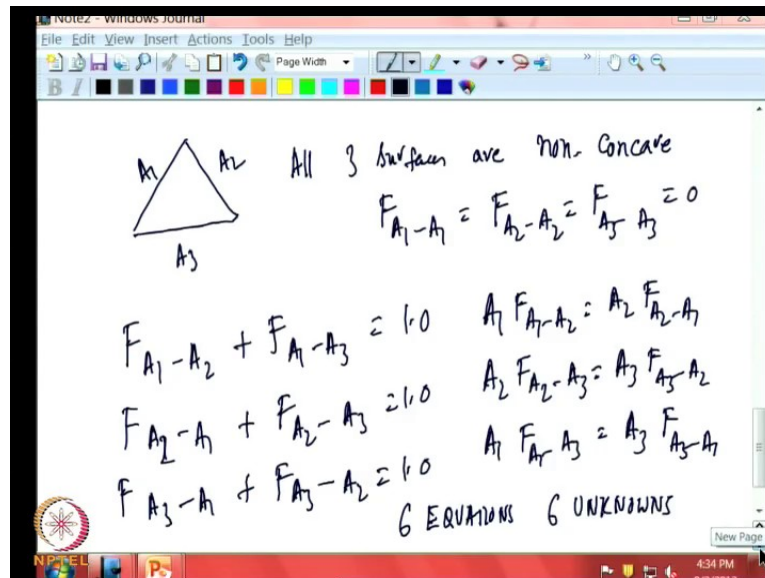 Note2 - Windows Journal
File Edit View Insert Actions Tools Help
Page Width
B I
A1 A2 All 3 surfaces are non-concave
A3
F A1-A1 = F A2-A2 = F A3-A3 = 0
F A1-A2 + F A1-A3 = 1.0 A1 F A1-A2 = A2 F A2-A1
F A2-A1 + F A2-A3 = 1.0 A2 F A2-A3 = A3 F A3-A2
F A3-A1 + F A3-A2 = 1.0 A1 F A1-A3 = A3 F A3-A1
6 EQUATIONS 6 UNKNOWNS
New Page
NPTEL
4:34 PM